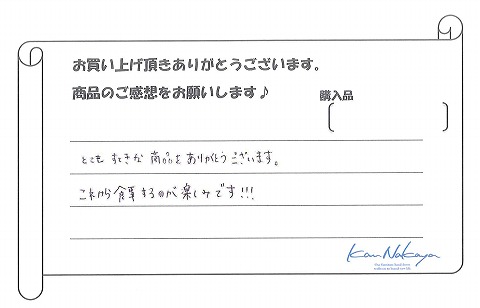 お買い上げ頂きありがとうございます。
商品のご感想をお願いします♪
購入品
とても すてきな 商品を ありがとうございます。
これから 食事するのが 楽しみです!!!
Kan Nakaya